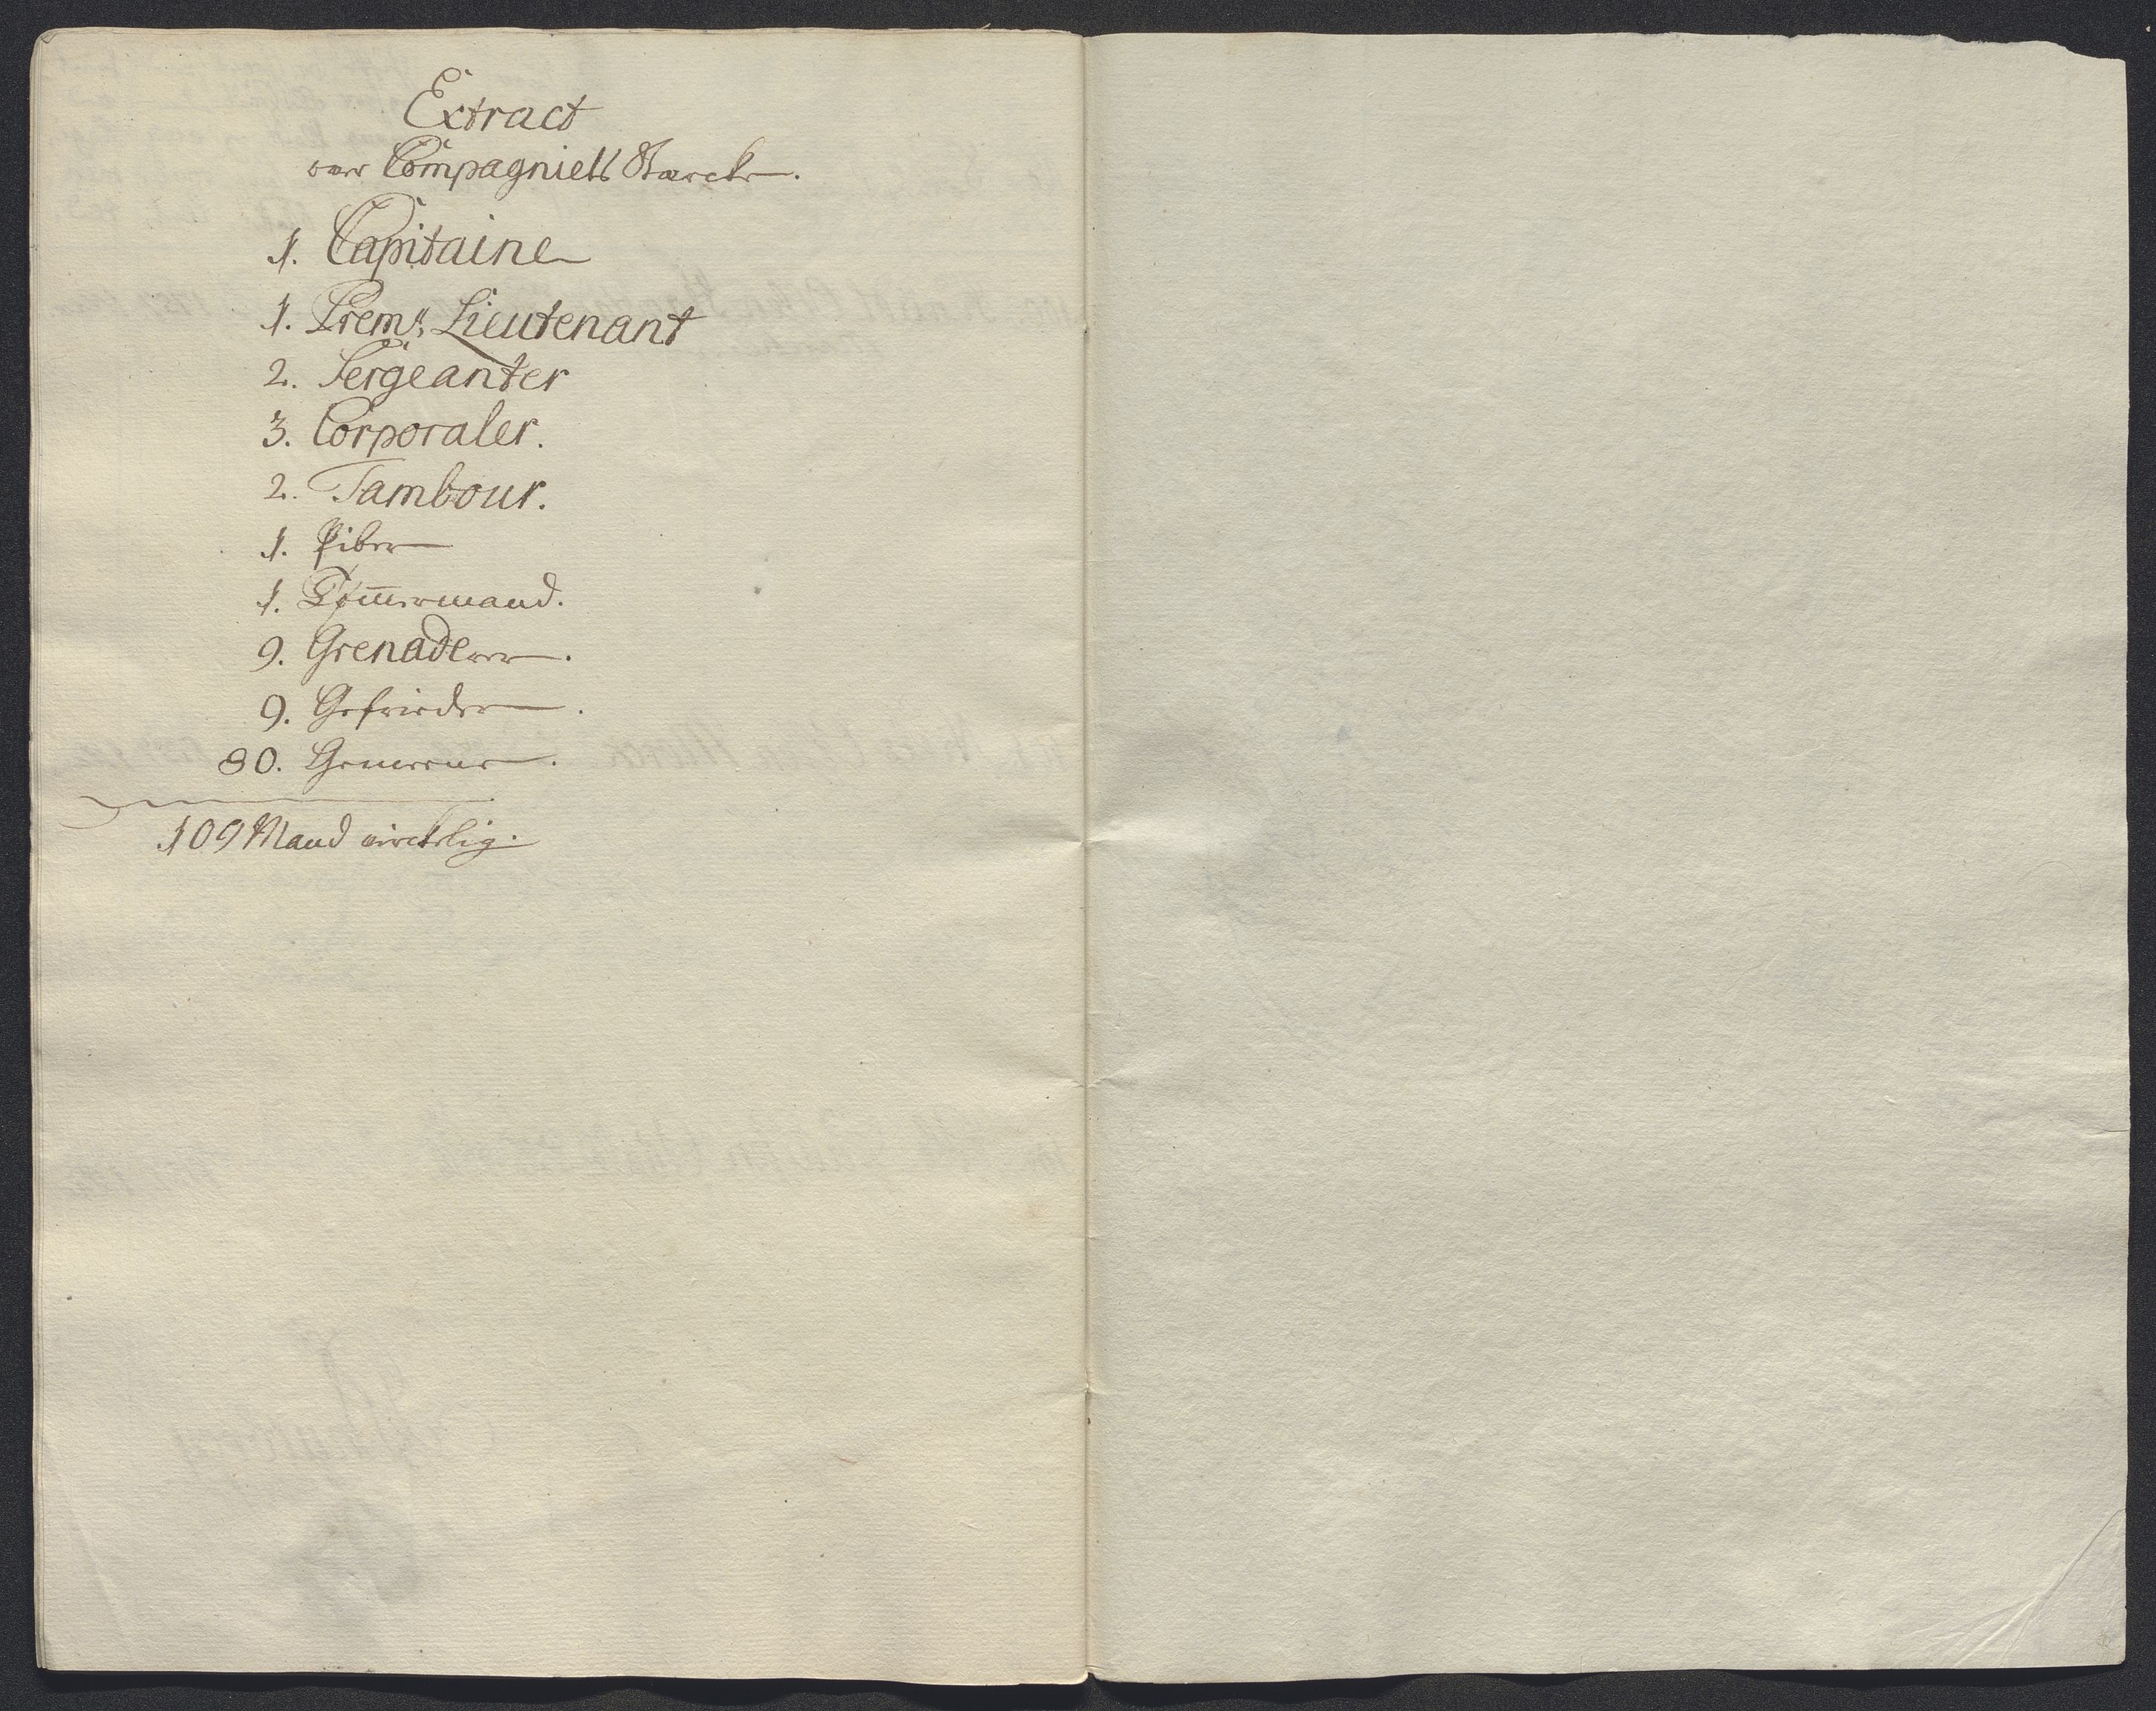 Extract
over Compagniets Starcke.
1. Capitaine
1. Prem: Lieutenant
2. Sergeanter
3. Corporaler.
2. Tambour.
1. Piber
1. Tømmermand.
9. Grenaderer.
9. Gefrieder.
80. Gemeene.
109 Mand virchelig.